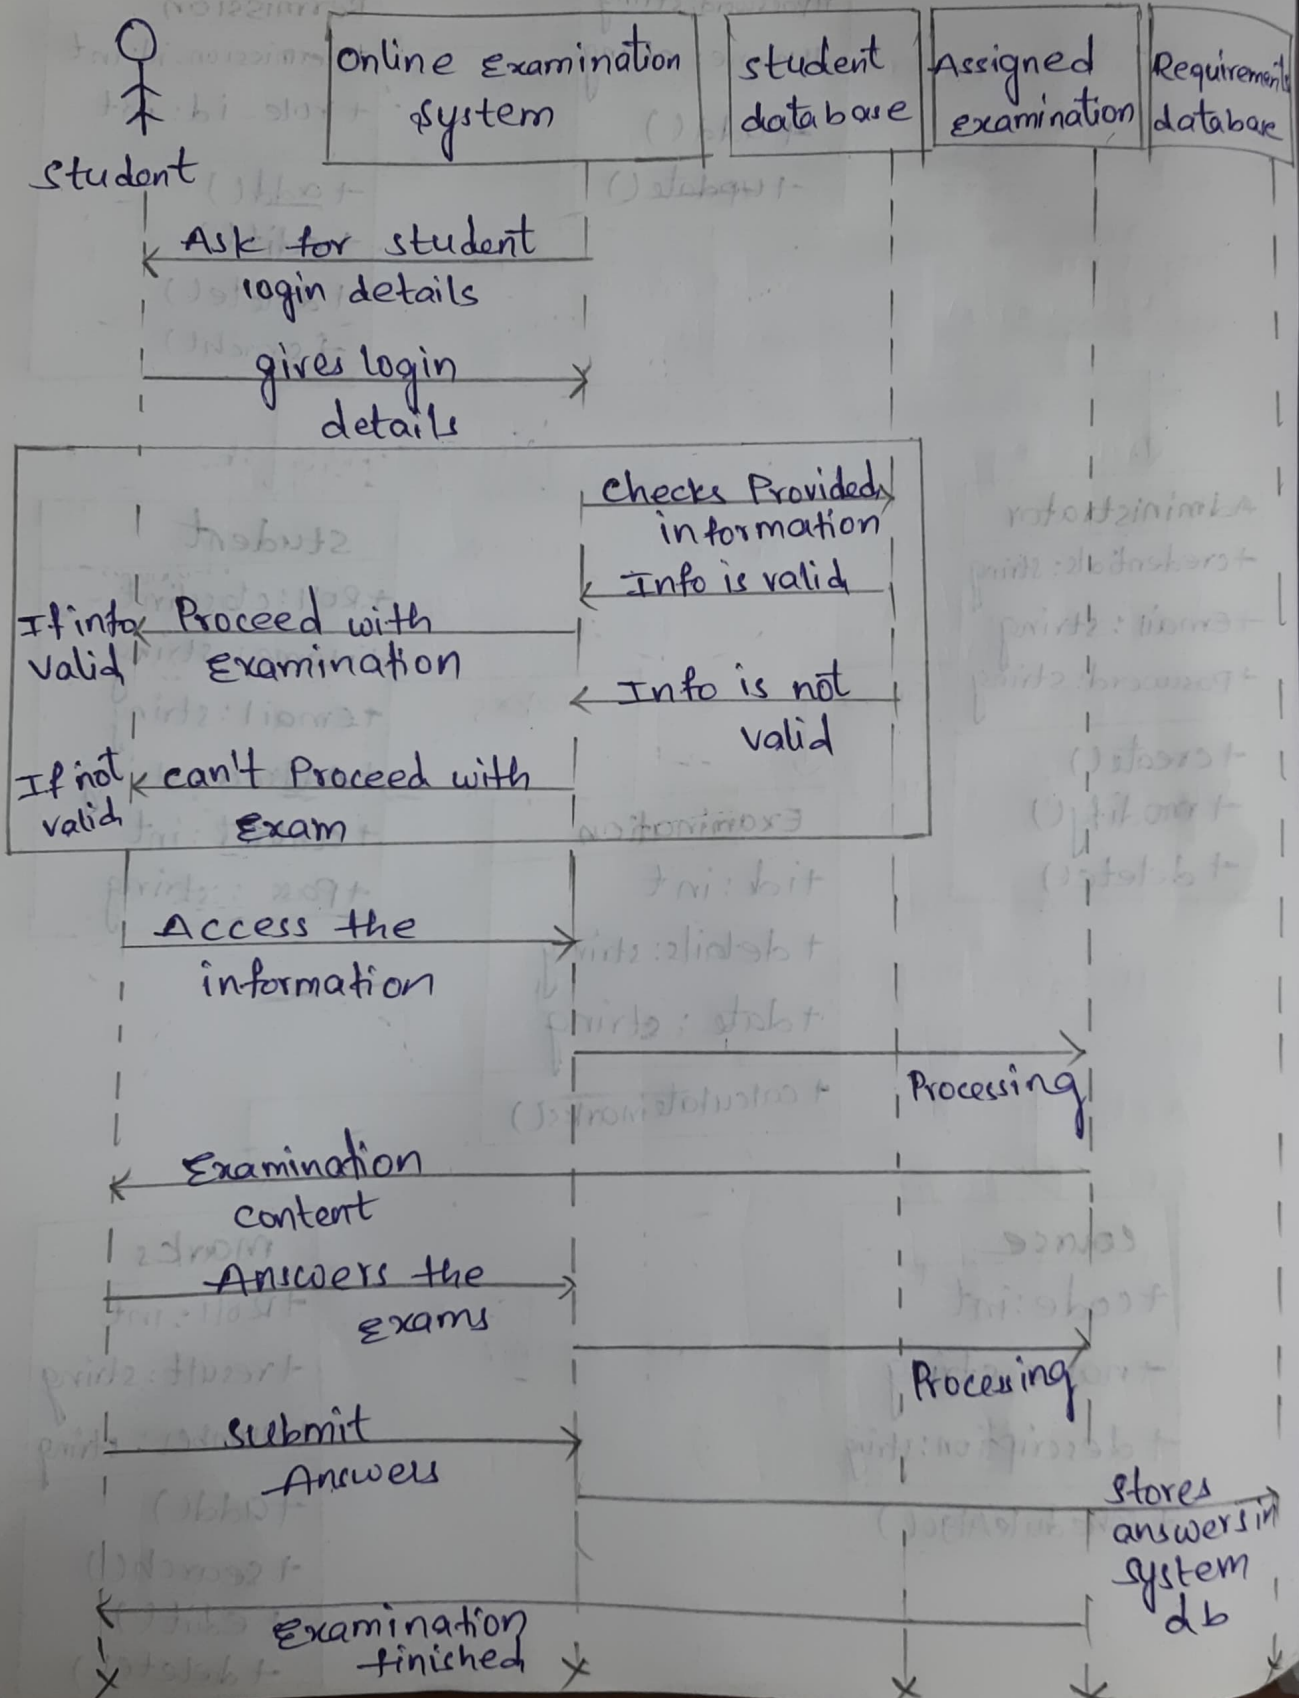 Online Examination
System
Student
database
Assigned
Examination
Requirements
database
Student
Ask for student
login details
gives login
details
Checks Provided
information
Info is valid
If info
valid
Proceed with
Examination
Info is not
valid
If not
valid
can't Proceed with
Exam
Access the
information
Processing
Examination
content
Answers the
Exams
Processing
Submit
Answers
Stores
answers in
system
db
Examination
finished